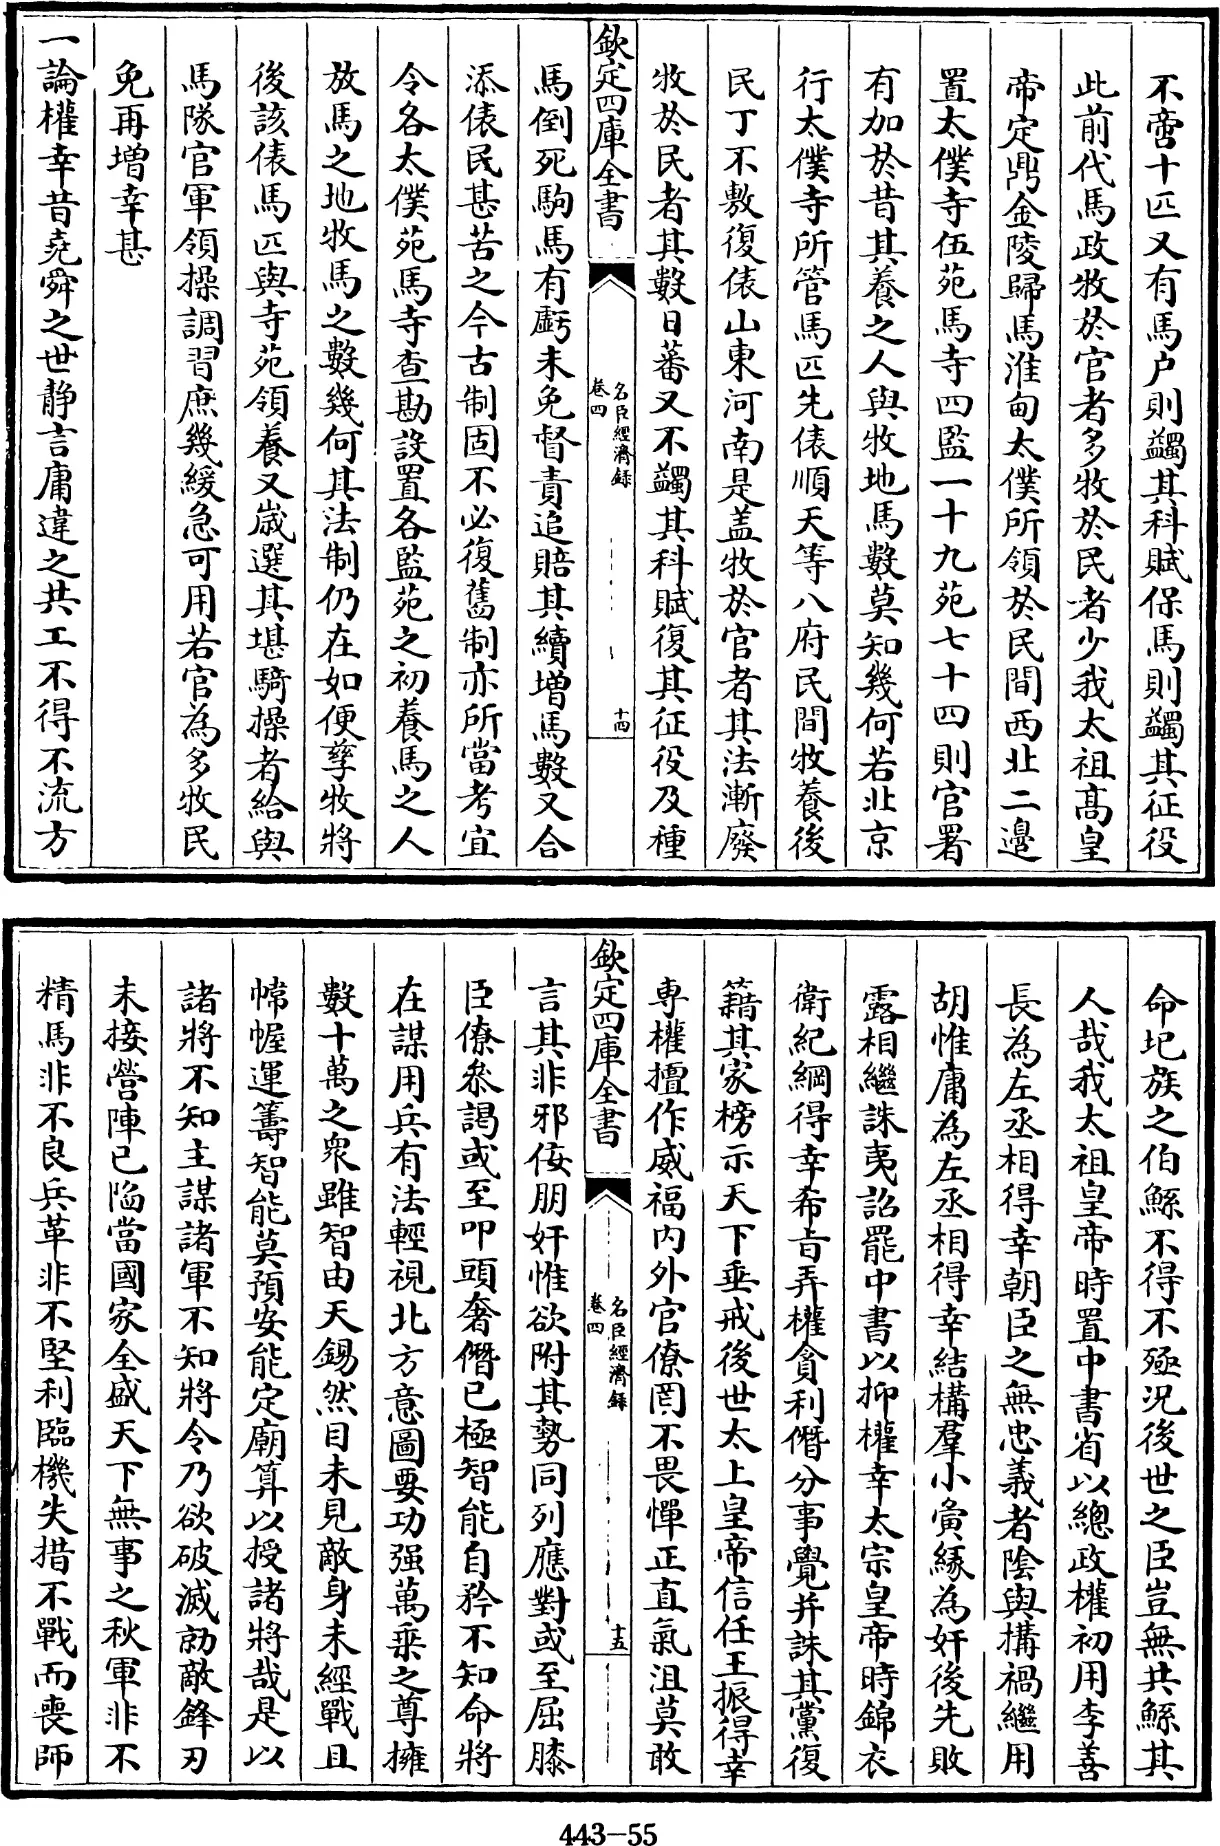 不啻十匹又有馬户則蠲其科賦保馬則蠲其征役
此前代馬政牧於官者多牧於民者少我太祖髙皇
帝定鼎金陵歸馬淮甸太僕所領於民間西北二邉
置太僕寺伍苑馬寺四監一十九苑七十四則官署
有加於昔其養之人與牧地馬數莫知幾何若北京
行太僕寺所管馬匹先俵順天等八府民間牧養後
民丁不敷復俵山東河南是盖牧於官者其法漸廢
牧於民者其數日蕃又不蠲其科賦復其征役及種
欽定四庫全書
名臣經濟録
卷四
十四
馬倒死駒馬有虧未免督責追賠其續增馬數又合
添俵民甚苦之今古制固不必復舊制亦所當考宜
令各太僕苑馬寺查勘設置各監苑之初養馬之人
放馬之地牧馬之數幾何其法制仍在如便孳牧將
後該俵馬匹與寺苑領養又歲選其堪騎操者給與
馬隊官軍領操調習庶幾緩急可用若官為多牧民
免再增幸甚
一論權幸昔堯舜之世静言庸違之共工不得不流方
命圮族之伯鯀不得不殛况後世之臣豈無共鯀其
人哉我太祖皇帝時置中書省以總政權初用李善
長為左丞相得幸朝臣之無忠義者隂與搆禍繼用
胡惟庸為左丞相得幸結構羣小夤縁為奸後先敗
露相繼誅夷詔罷中書以抑權幸太宗皇帝時錦衣
衛紀綱得幸希㫖弄權貪利僭分事覺并誅其黨復
籍其家榜示天下垂戒後世太上皇帝信任王振得幸
専權擅作威福内外官僚罔不畏憚正直氣沮莫敢
欽定四庫全書
名臣經濟録
卷四
十五
言其非邪佞朋奸惟欲附其勢同列應對或至屈膝
臣僚叅謁或至叩頭奢僭已極智能自矜不知命將
在謀用兵有法輕視北方意圖要功强萬乗之尊擁
數十萬之衆雖智由天錫然目未見敵身未經戰且
帷幄運籌智能莫預安能定廟算以授諸將哉是以
諸將不知主謀諸軍不知將令乃欲破滅勍敵鋒刃
未接營陣已陷當國家全盛天下無事之秋軍非不
精馬非不良兵革非不堅利臨機失措不戰而喪師
443-55